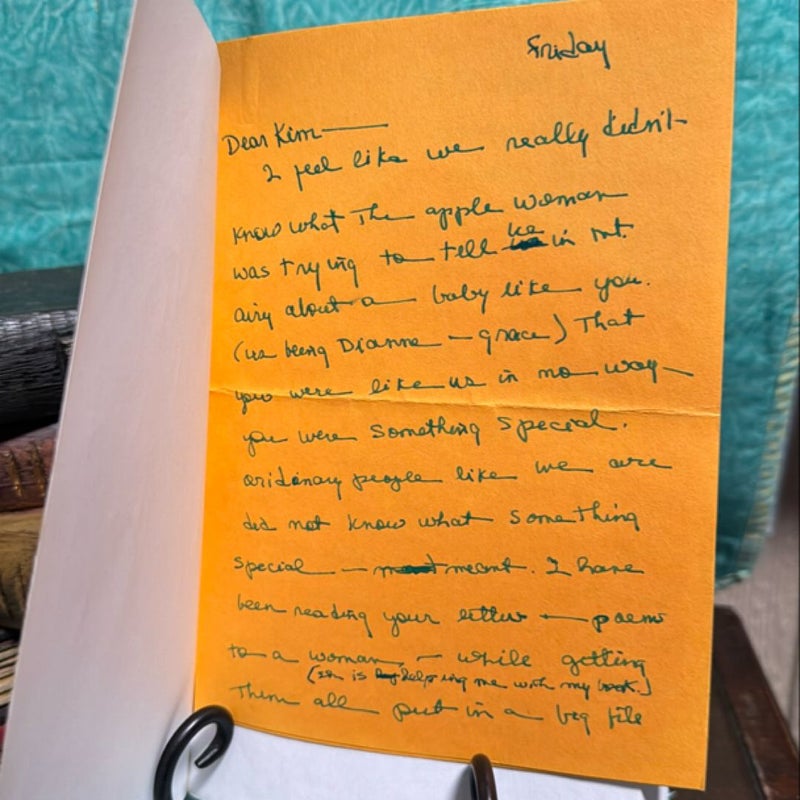 Friday
Dear Kim —
I feel like we really didn't
know what The apple woman
was trying to tell us in mt.
airy about a baby like you.
(us being Dianne — grace) That
you were like us in no way —
you were something special.
oridinary people like we are
did not know what something
special — meant. I have
been reading your letters — poems
to a woman, — while getting
(is helping me with my book.)
Them all put in a big file